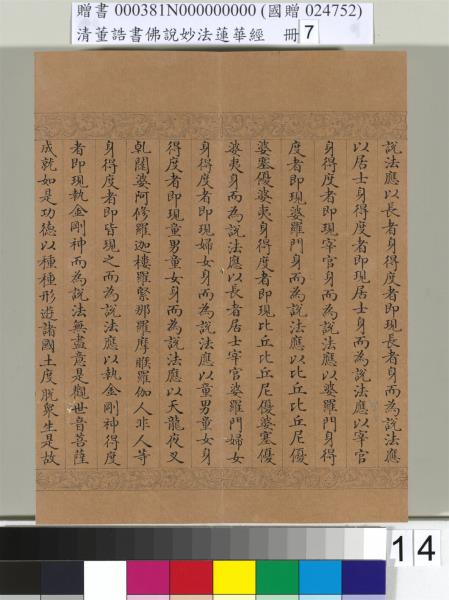 贈書 000381N000000000 (國贈 024752)
清董誥書佛說妙法蓮華經 冊 7
說法應以長者身得度者即現長者身而為說法應
以居士身得度者即現居士身而為說法應以宰官
身得度者即現宰官身而為說法應以婆羅門身得
度者即現婆羅門身而為說法應以比丘比丘尼優
婆塞優婆夷身得度者即現比丘比丘尼優婆塞優
婆夷身而為說法應以長者居士宰官婆羅門婦女
身得度者即現婦女身而為說法應以童男童女身
得度者即現童男童女身而為說法應以天龍夜叉
乹闥婆阿修羅迦樓羅緊那羅摩睺羅伽人非人等
身得度者即皆現之而為說法應以執金剛神得度
者即現執金剛神而為說法無盡意是觀世音菩薩
成就如是功德以種種形遊諸國土度脫眾生是故
14